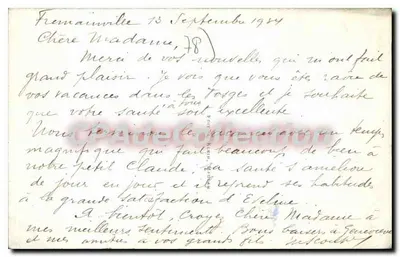 Fremainville 13 Septembre 1984
Chère Madame, 78)
Merci de vos nouvelles qui m'ont fait
grand plaisir. Je vois que vous êtes ravie de
vos vacances dans les Vosges et je souhaite
que votre santé à tous soit excellente.
Nous
magnifique qui fait beaucoup de bien à
notre petit Claude, sa santé s'améliore
de jour en jour et il reprend ses habitudes
à la grande satisfaction d'Eveline.
A bientôt, Croyez Chère Madame à
mes meilleurs sentiments. Bons baisers à Geneviève
et mes amitiés à vos grands fils